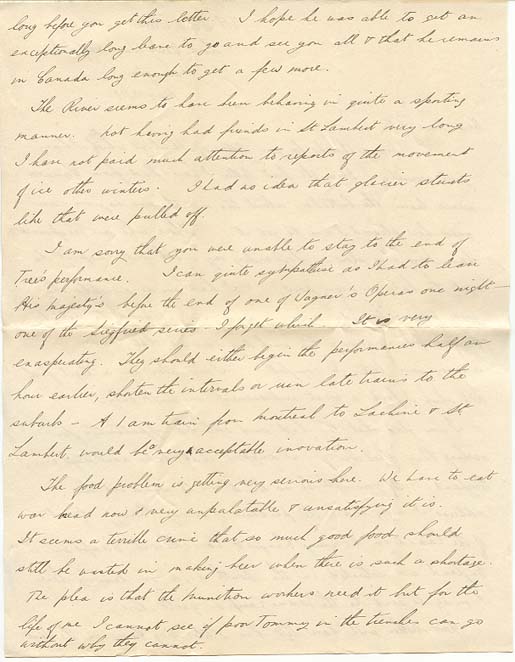 long before you get this letter. I hope he was able to get an
exceptionally long leave to go and see you all & that he remains
in Canada long enough to get a few more.
The River seems to have been behaving in quite a sporting
manner. Not having had friends in St Lambert very long
I have not paid much attention to reports of the movement
of ice other winters. I had no idea that glacier stunts
like that were pulled off.
I am sorry that you were unable to stay to the end of
Tree's performance. I can quite sympathise as I had to leave
His Majesty's before the end of one of Wagner's Operas one night -
one of the Siegfried series - I forget which. It is very
exasperating. They should either begin the performances half an
hour earlier, shorten the intervals or run late trains to the
suburbs - A 1 am train from Montreal to Lachine & St
Lambert would be a very acceptable inovation.
The food problem is getting very serious here. We have to eat
war bread now & very unpalatable & unsatisfying it is.
It seems a terrible crime that so much good food should
still be wasted in making beer when there is such a shortage.
The plea is that the munition workers need it but for the
life of me I cannot see if poor Tommy in the trenches can go
without why they cannot.